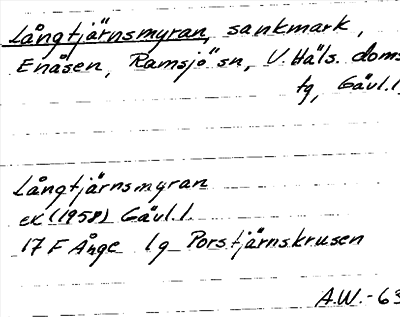 Långtjärnsmyran, sankmark,
Enåsen, Ramsjö sn, V. Häls. doms
tg, Gävl. l.
Långtjärnsmyran
ek (1958) Gävl. l.
17 F Ånge lg Porstjärnskrusen
A.W. -63